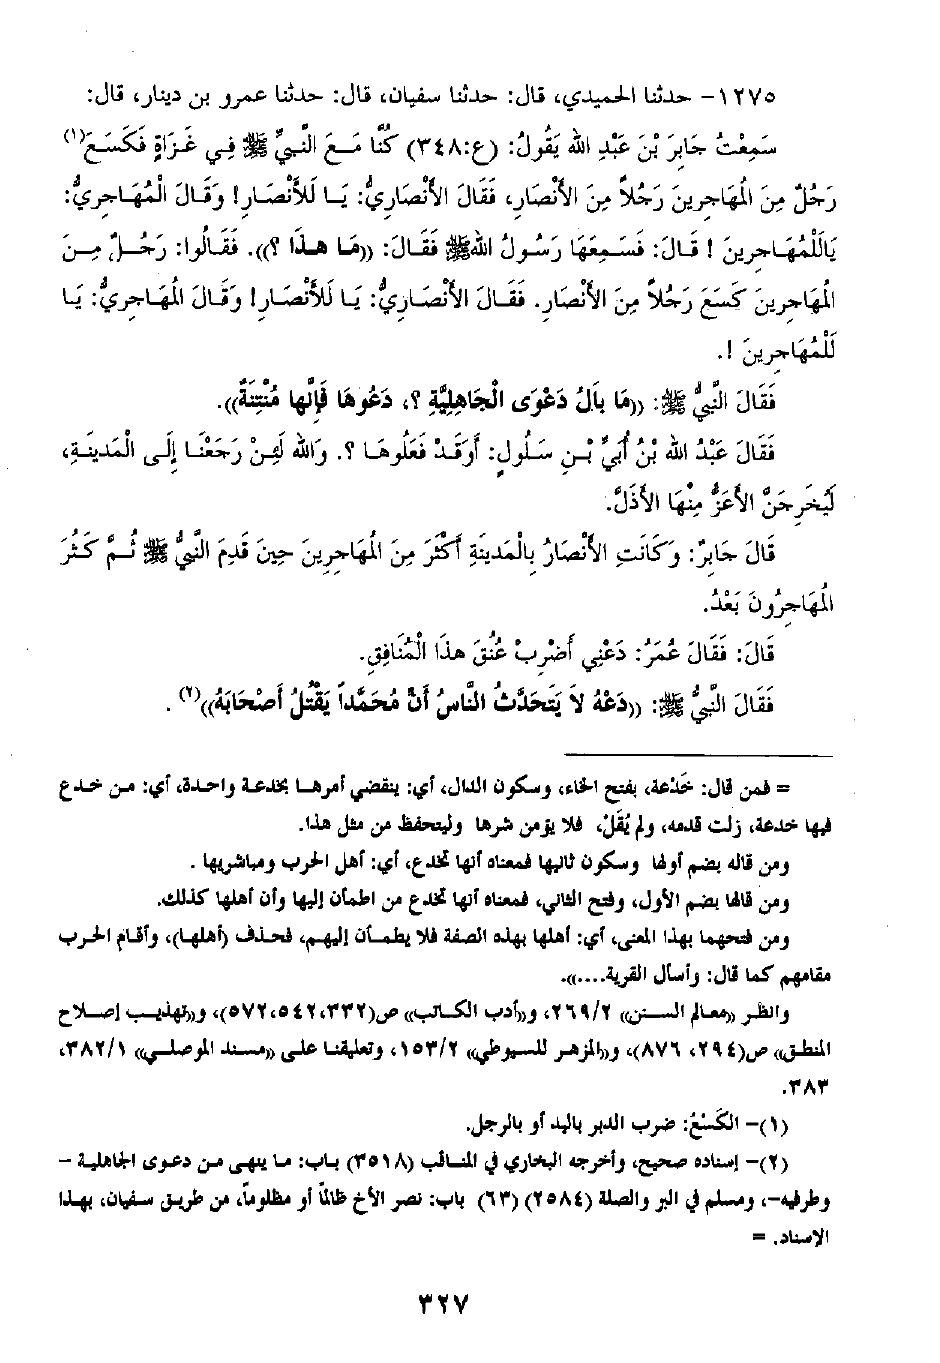 ١٢٧٥- حدثنا الحميدي، قال: حدثنا سفيان، قال: حدثنا عمرو بن دينار، قال:
سَمِعْتُ جَابِرَ بْنَ عَبْدِ الله يَقُولُ: (ع:٣٤٨) كُنَّا مَعَ النَّبِيِّ ﷺ فِي غَزَاةٍ فَكَسَعَ(١)
رَجُلٌ مِنَ الْمُهَاجِرينَ رَجُلاً مِنَ الأَنْصَارِ، فَقَالَ الأَنْصَارِيُّ: يَا لَلأَنْصَارِ! وَقَالَ الْمُهَاجِرِيُّ:
يَالَلْمُهَاجِرِينَ ! قَالَ: فَسَمِعَهَا رَسُولُ اللهِ ﷺ فَقَالَ: ((مَا هذَا ؟)). فَقَالُوا: رَجُلٌ مِنَ
الْمُهَاجِرِينَ كَسَعَ رَجُلاً مِنَ الأَنْصَارِ. فَقَالَ الأَنْصَارِيُّ: يَا لَلأَنْصَارِ! وَقَالَ الْمُهَاجِرِيُّ: يَا
لَلْمُهَاجِرِينَ !.
فَقَالَ النَّبِيُّ ﷺ: ((مَا بَالُ دَعْوَى الْجَاهِلِيَّةِ ؟، دَعُوهَا فَإِنَّها مُنْتِنَةٌ)).
فَقَالَ عَبْدُ الله بْنُ أُبَيِّ بْنِ سَلُولٍ: أَوَقَدْ فَعَلُوهَا ؟. وَالله لَئِنْ رَجَعْنَا إِلَى الْمَدينَةِ،
لَيُخرِجَنَّ الأَعَزُّ مِنْهَا الأَذَلَّ.
قَالَ جَابِرٌ: وَكَانَتِ الأَنْصَارُ بِالْمَدينَةِ أَكْثَرَ مِنَ الْمُهَاجِرِينَ حِينَ قَدِمَ النَّبِيُّ ﷺ ثُمَّ كَثُرَ
الْمُهَاجِرُونَ بَعْدُ.
قَالَ: فَقَالَ عُمَرُ: دَعْنِي أَضْرِبْ عُنُقَ هذَا الْمُنَافِقِ.
فَقَالَ النَّبِيُّ ﷺ: ((دَعْهُ لاَ يَتَحَدَّثُ النَّاسُ أَنَّ مُحَمَّداً يَقْتُلُ أَصْحَابَهُ))(٢) .
= فمن قال: خَدْعة، بفتح الخاء، وسكون الدال، أي: ينقضي أمرها بخدعة واحدة، أي: من خدع
فيها خدعة، زلت قدمه، ولم يُقَلْ، فلا يؤمن شرها وليتحفظ من مثل هذا.
ومن قاله بضم أولها وسكون ثانيها فمعناه أنها تخدع، أي: أهل الحرب ومباشريها .
ومن قالها بضم الأول، وفتح الثاني، فمعناه أنها تخدع من اطمأن إليها وأن أهلها كذلك.
ومن فتحهما بهذا المعنى، أي: أهلها بهذه الصفة فلا يطمأن إليهم، فحذف (أهلها)، وأقام الحرب
مقامهم كما قال: وأسأل القرية....)).
وانظر ((معالم السنن)) ٢٦٩/٢، و((أدب الكاتب)) ص(٣٣٢، ٥٤٢، ٥٧٢)، و((تهذيب إصلاح
المنطق)) ص(٢٩٤، ٨٧٦)، و((المزهر للسيوطي)) ١٥٣/٢، وتعليقنا على ((مسند الموصلي)) ٣٨٢/١،
٣٨٣.
(١)- الكَسْعُ: ضرب الدبر باليد أو بالرجل.
(٢)- إسناده صحيح، وأخرجه البخاري في المناقب (٣٥١٨) باب: ما ينهى من دعوى الجاهلية -
وطرفيه-، ومسلم في البر والصلة (٢٥٨٤) (٦٣) باب: نصر الأخ ظالماً أو مظلوماً، من طريق سفيان، بهذا
الإسناد. =
٣٢٧